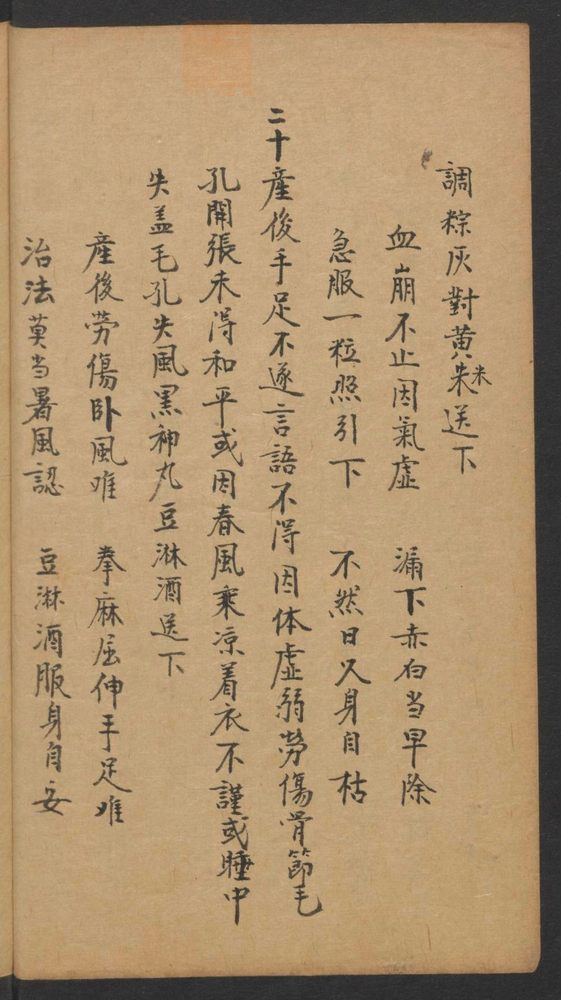 調粽灰對黄米送下
血崩不止因氣虛　漏下赤白当早除
急服一粒照引下　不然日久身自枯
二十産後手足不遂言語不得因体虛弱勞傷骨節毛
孔開張未得和平或因春風乘凉着衣不謹或睡中
失盖毛孔失風黑神丸豆淋酒送下
産後勞傷卧風难　拳麻屈伸手足难
治法莫当暑風認　豆淋酒服身自安